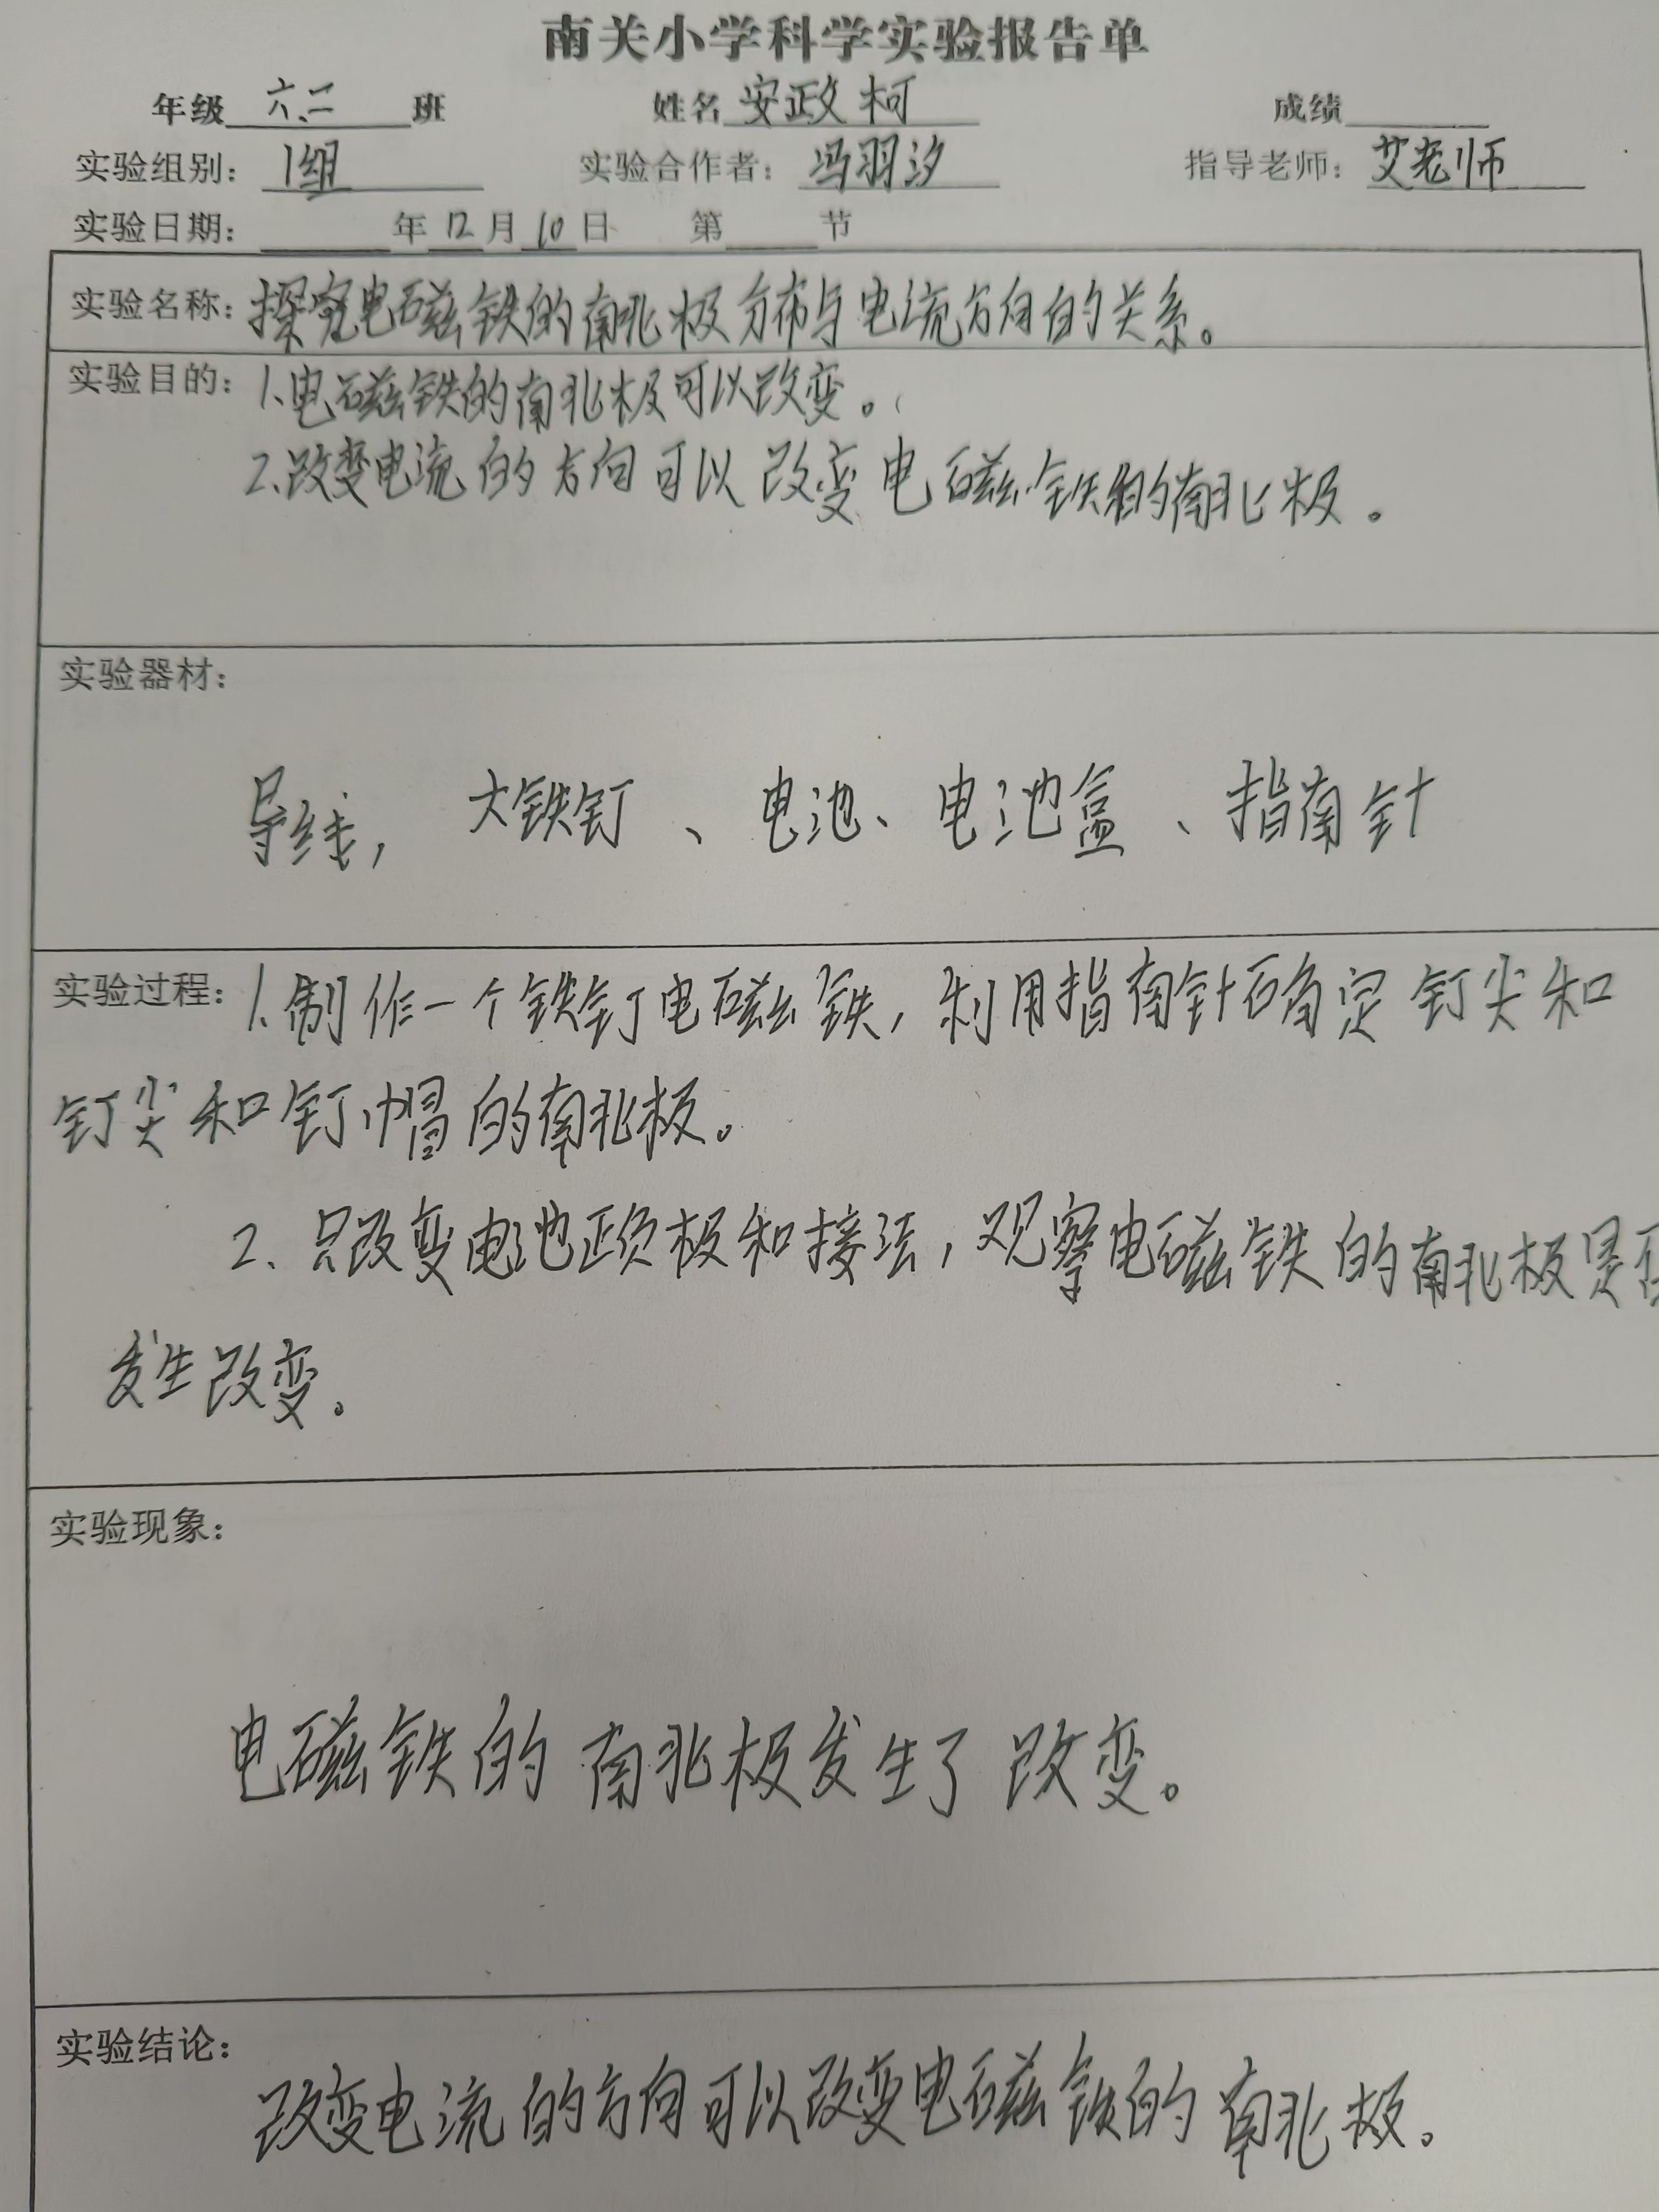 南关小学科学实验报告单
年级 六、二 班 姓名 安政柯 成绩
实验组别: 1组 实验合作者: 冯羽汐 指导老师: 艾老师
实验日期: 年 12 月 10 日 第 节
实验名称: 探究电磁铁的南北极分布与电流方向的关系。
实验目的: 1.电磁铁的南北极可以改变。
2.改变电流的方向可以改变电磁铁的南北极。
实验器材:
导线, 大铁钉、电池、电池盒、指南针
实验过程: 1.制作一个铁钉电磁铁, 利用指南针确定钉尖和
钉尖和钉帽的南北极。
2. 只改变电池正负极和接法, 观察电磁铁的南北极是否
发生改变。
实验现象:
电磁铁的南北极发生了改变。
实验结论:
改变电流的方向可以改变电磁铁的南北极。